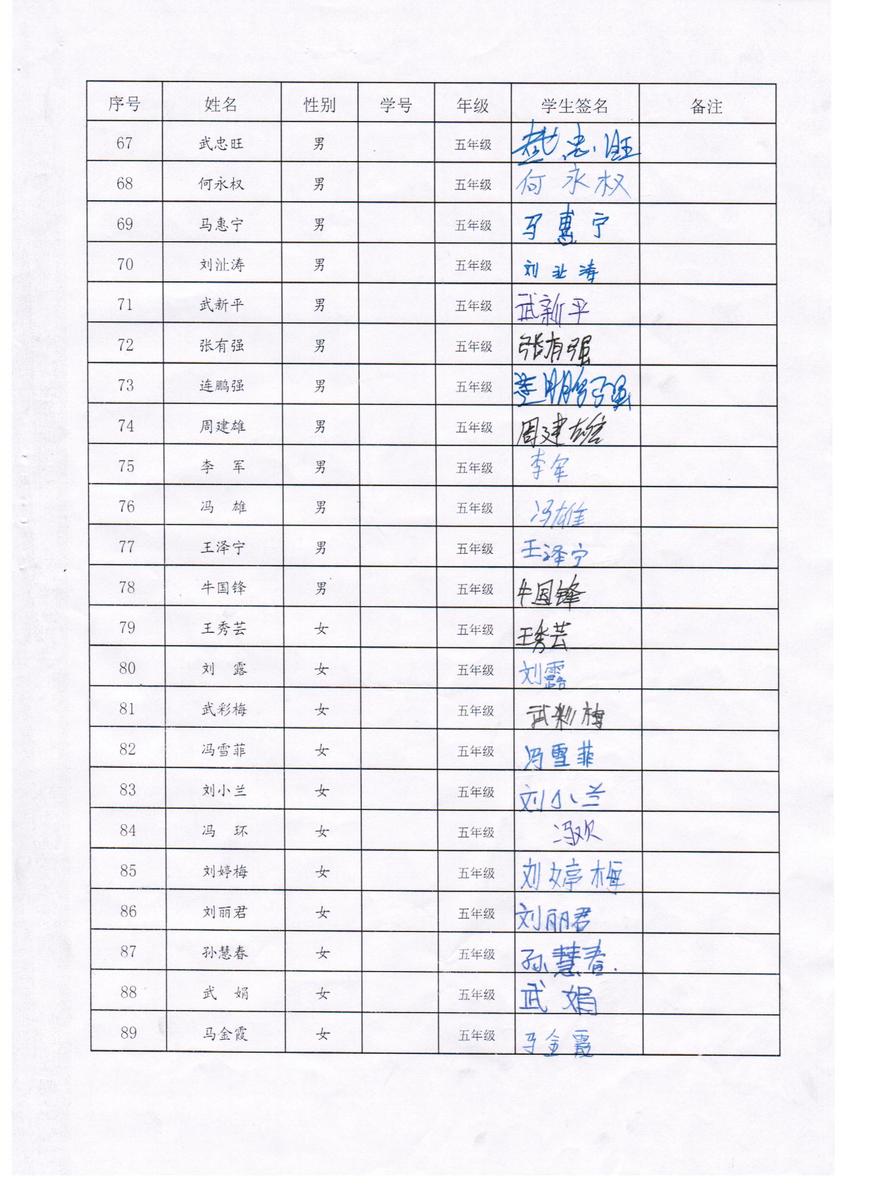 序号 姓名 性别 学号 年级 学生签名 备注
67 武忠旺 男 五年级 武忠旺
68 何永权 男 五年级 何永权
69 马惠宁 男 五年级 马惠宁
70 刘沚涛 男 五年级 刘沚涛
71 武新平 男 五年级 武新平
72 张有强 男 五年级 张有强
73 连鹏强 男 五年级 连鹏强
74 周建雄 男 五年级 周建雄
75 李 军 男 五年级 李军
76 冯 雄 男 五年级 冯雄
77 王泽宁 男 五年级 王泽宁
78 牛国锋 男 五年级 牛国锋
79 王秀芸 女 五年级 王秀芸
80 刘 露 女 五年级 刘露
81 武彩梅 女 五年级 武彩梅
82 冯雪菲 女 五年级 冯雪菲
83 刘小兰 女 五年级 刘小兰
84 冯 环 女 五年级 冯欢
85 刘婷梅 女 五年级 刘婷梅
86 刘丽君 女 五年级 刘丽君
87 孙慧春 女 五年级 孙慧春.
88 武 娟 女 五年级 武娟
89 马金霞 女 五年级 马金霞